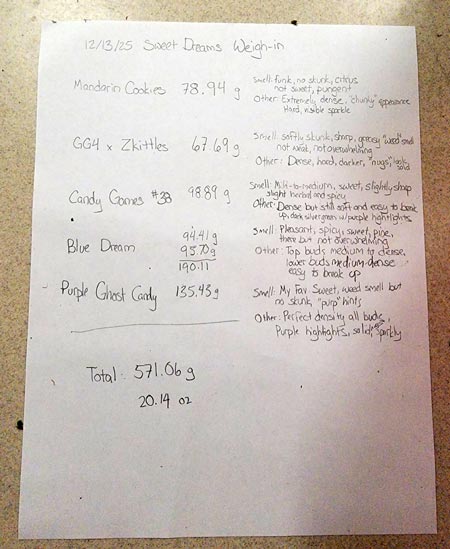 12/13/25 Sweet Dreams Weigh-in
Mandarin Cookies 78.94 g
Smell: funk, no skunk, citrus
not sweet, pungent
Other: Extremely, dense, "chunky" appearance
Hard, visible sparkle
GG4 x Zkittles 67.69 g
Smell: softly skunk, sharp, greasy "weed" smell
not weak, not overwhelming
Other: Dense, hard, darker, "nugs",
solid
Candy Games #38 98.89 g
Smell: Mild-to-medium, sweet, slightly sharp
slight herbal and spicy
Other: Dense but still soft and easy to break
up, dark silver green w/ purple hightlights
Blue Dream 94.41 g
95.70 g
190.11
Smell: Pleasant, spicy, sweet, pine,
there but not overwhelming
Other: Top buds medium to dense,
lower buds medium-dense
easy to break up
Purple Ghost Candy 135.43 g
Smell: My Fav Sweet, weed smell but
no skunk, "purp" hints
Other: Perfect density all buds,
Purple highlights, solid, sparkly
Total: 571.06 g
20.14 oz